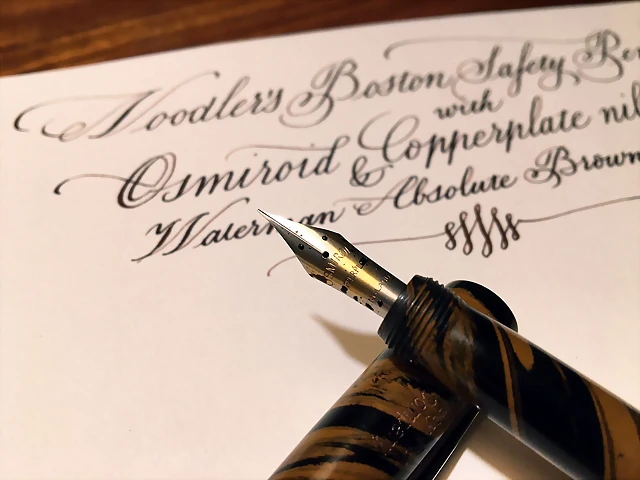 Noodler's Boston Safety Pen
with
Osmiroid & Copperplate nib
Waterman Absolute Brown
OSMIROID